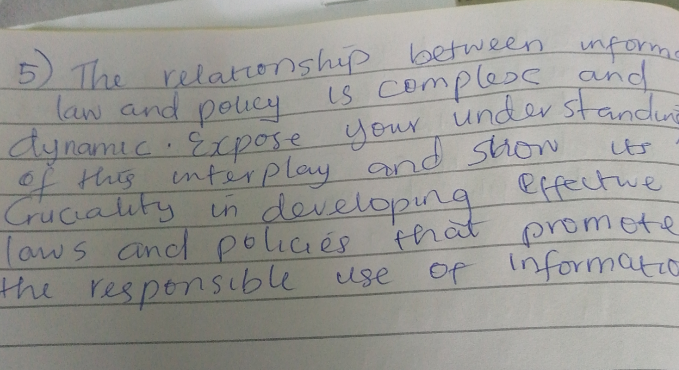 5) The relationship between inform
law and policy is complex and
dynamic. Expose your understandin
of this interplay and show its
Cruciality in developing effective
laws and policies that promote
the responsible use of informatio